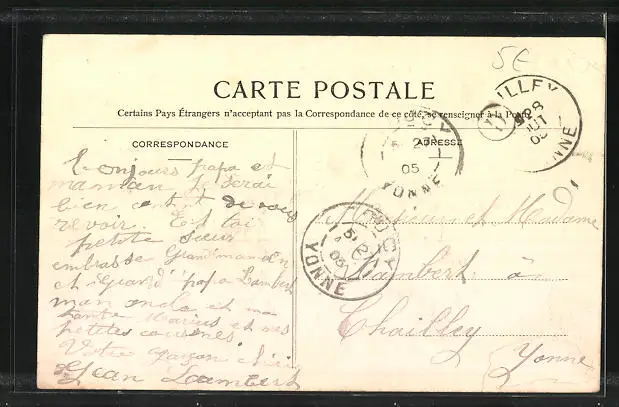 5E
CARTE POSTALE
Certains Pays Étrangers n'acceptant pas la Correspondance de ce côté, se renseigner à la Poste
CORRESPONDANCE
ADRESSE
Bonjours papa et
maman je serai
bien contant de vous
revoir. Et toi
petite sœur
embrasse Grandmaman
et Grand papa Lambert
mon oncle et ma
tante Marius et mes
petites cousines
Votre garçon chéri
Jean Lambert
Monsieur et Madame
Lambert à
Chailley
Yonne
ILLEY
28
05
YONNE
05
YONNE
05
YONNE